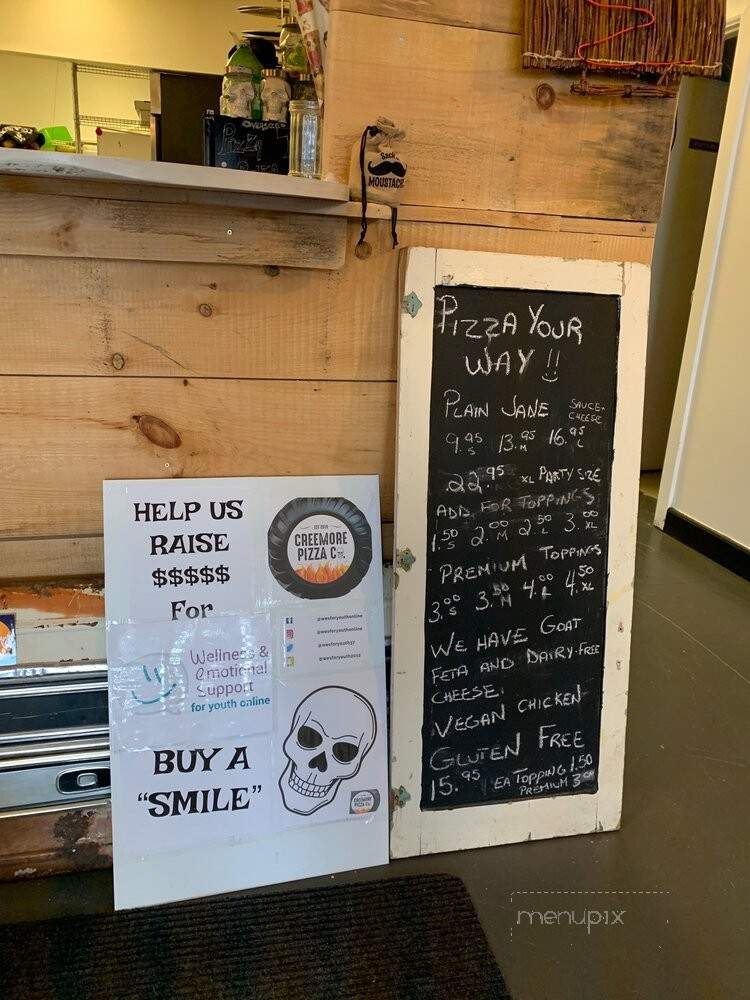 OVERSIZED
PIZZA
Sack
MOUSTACHE
HELP US
RAISE
$$$$$
For
EST 2019
CREEMORE
PIZZA Co.
@wesforyouthonline
@wesforyouthonline
@wesforyouth2012
Wellness &
emotional
Support
for youth online
BUY A
“SMILE”
CREEMORE
PIZZA Co.
PIZZA YOUR
WAY!!
PLAIN JANE SAUCE-
CHEESE
9.95 S 13.95 M 16.95 L
22.95 XL PARTY SIZE
ADD FOR TOPPINGS
1.50 S 2.00 M 2.50 L 3.00 XL
PREMIUM TOPPINGS
3.00 S 3.50 M 4.00 L 4.50 XL
WE HAVE GOAT
FETA AND DAIRY-FREE
CHEESE.
VEGAN CHICKEN
GLUTEN FREE
15.95 EA TOPPING 1.50
PREMIUM 3.00
menupix